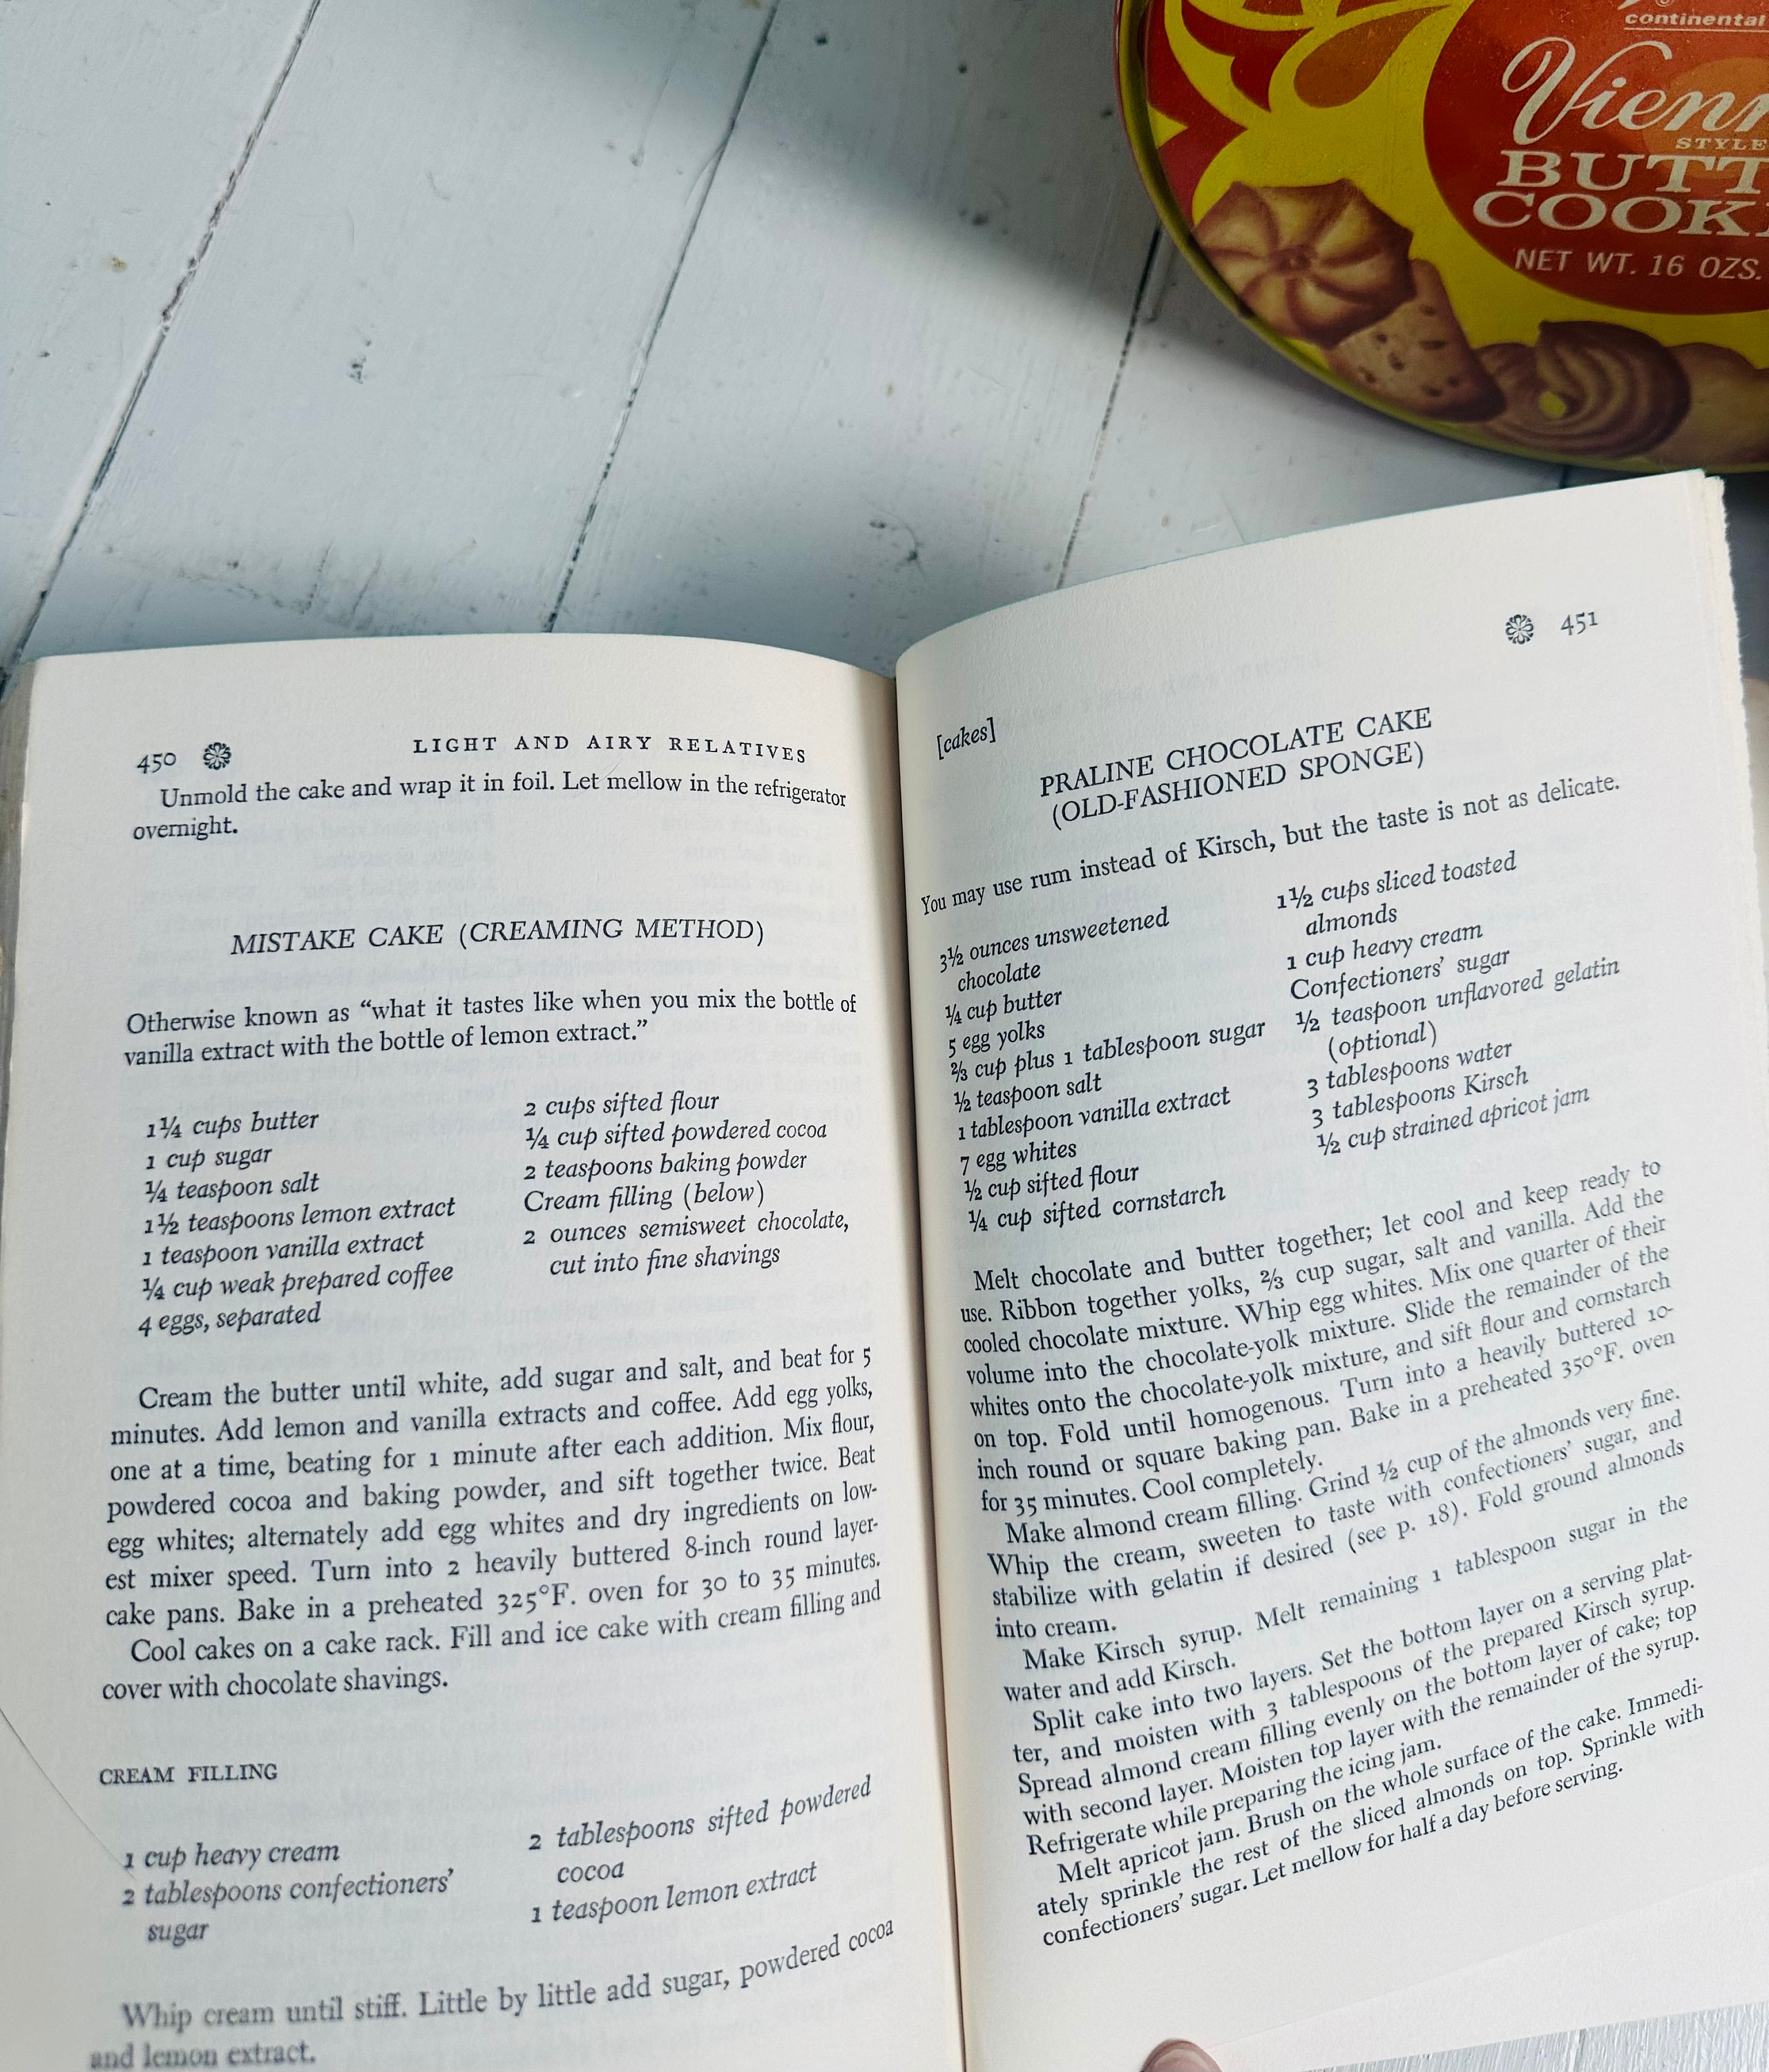 continental
STYLE
NET WT. 16 OZS.
450
LIGHT AND AIRY RELATIVES
Unmold the cake and wrap it in foil. Let mellow in the refrigerator
overnight.
MISTAKE CAKE (CREAMING METHOD)
Otherwise known as “what it tastes like when you mix the bottle of
vanilla extract with the bottle of lemon extract.”
1¼ cups butter
1 cup sugar
¼ teaspoon salt
1½ teaspoons lemon extract
1 teaspoon vanilla extract
¼ cup weak prepared coffee
4 eggs, separated
2 cups sifted flour
¼ cup sifted powdered cocoa
2 teaspoons baking powder
Cream filling (below)
2 ounces semisweet chocolate,
cut into fine shavings
Cream the butter until white, add sugar and salt, and beat for 5
minutes. Add lemon and vanilla extracts and coffee. Add egg yolks,
one at a time, beating for 1 minute after each addition. Mix flour,
powdered cocoa and baking powder, and sift together twice. Beat
egg whites; alternately add egg whites and dry ingredients on low-
est mixer speed. Turn into 2 heavily buttered 8-inch round layer-
cake pans. Bake in a preheated 325°F. oven for 30 to 35 minutes.
Cool cakes on a cake rack. Fill and ice cake with cream filling and
cover with chocolate shavings.
CREAM FILLING
1 cup heavy cream
2 tablespoons confectioners’
sugar
2 tablespoons sifted powdered
cocoa
1 teaspoon lemon extract
Whip cream until stiff. Little by little add sugar, powdered cocoa
and lemon extract.
451
[cakes]
PRALINE CHOCOLATE CAKE
(OLD-FASHIONED SPONGE)
You may use rum instead of Kirsch, but the taste is not as delicate.
3½ ounces unsweetened
chocolate
¼ cup butter
5 egg yolks
⅔ cup plus 1 tablespoon sugar
½ teaspoon salt
1 tablespoon vanilla extract
7 egg whites
½ cup sifted flour
¼ cup sifted cornstarch
1½ cups sliced toasted
almonds
1 cup heavy cream
Confectioners’ sugar
½ teaspoon unflavored gelatin
(optional)
3 tablespoons water
3 tablespoons Kirsch
½ cup strained apricot jam
Melt chocolate and butter together; let cool and keep ready to
use. Ribbon together yolks, ⅔ cup sugar, salt and vanilla. Add the
cooled chocolate mixture. Whip egg whites. Mix one quarter of their
volume into the chocolate-yolk mixture. Slide the remainder of the
whites onto the chocolate-yolk mixture, and sift flour and cornstarch
on top. Fold until homogenous. Turn into a heavily buttered 10-
inch round or square baking pan. Bake in a preheated 350°F. oven
for 35 minutes. Cool completely.
Make almond cream filling. Grind ½ cup of the almonds very fine.
Whip the cream, sweeten to taste with confectioners’ sugar, and
stabilize with gelatin if desired (see p. 18). Fold ground almonds
into cream.
Make Kirsch syrup. Melt remaining 1 tablespoon sugar in the
water and add Kirsch.
Split cake into two layers. Set the bottom layer on a serving plat-
ter, and moisten with 3 tablespoons of the prepared Kirsch syrup.
Spread almond cream filling evenly on the bottom layer of cake; top
with second layer. Moisten top layer with the remainder of the syrup.
Refrigerate while preparing the icing jam.
Melt apricot jam. Brush on the whole surface of the cake. Immedi-
ately sprinkle the rest of the sliced almonds on top. Sprinkle with
confectioners’ sugar. Let mellow for half a day before serving.